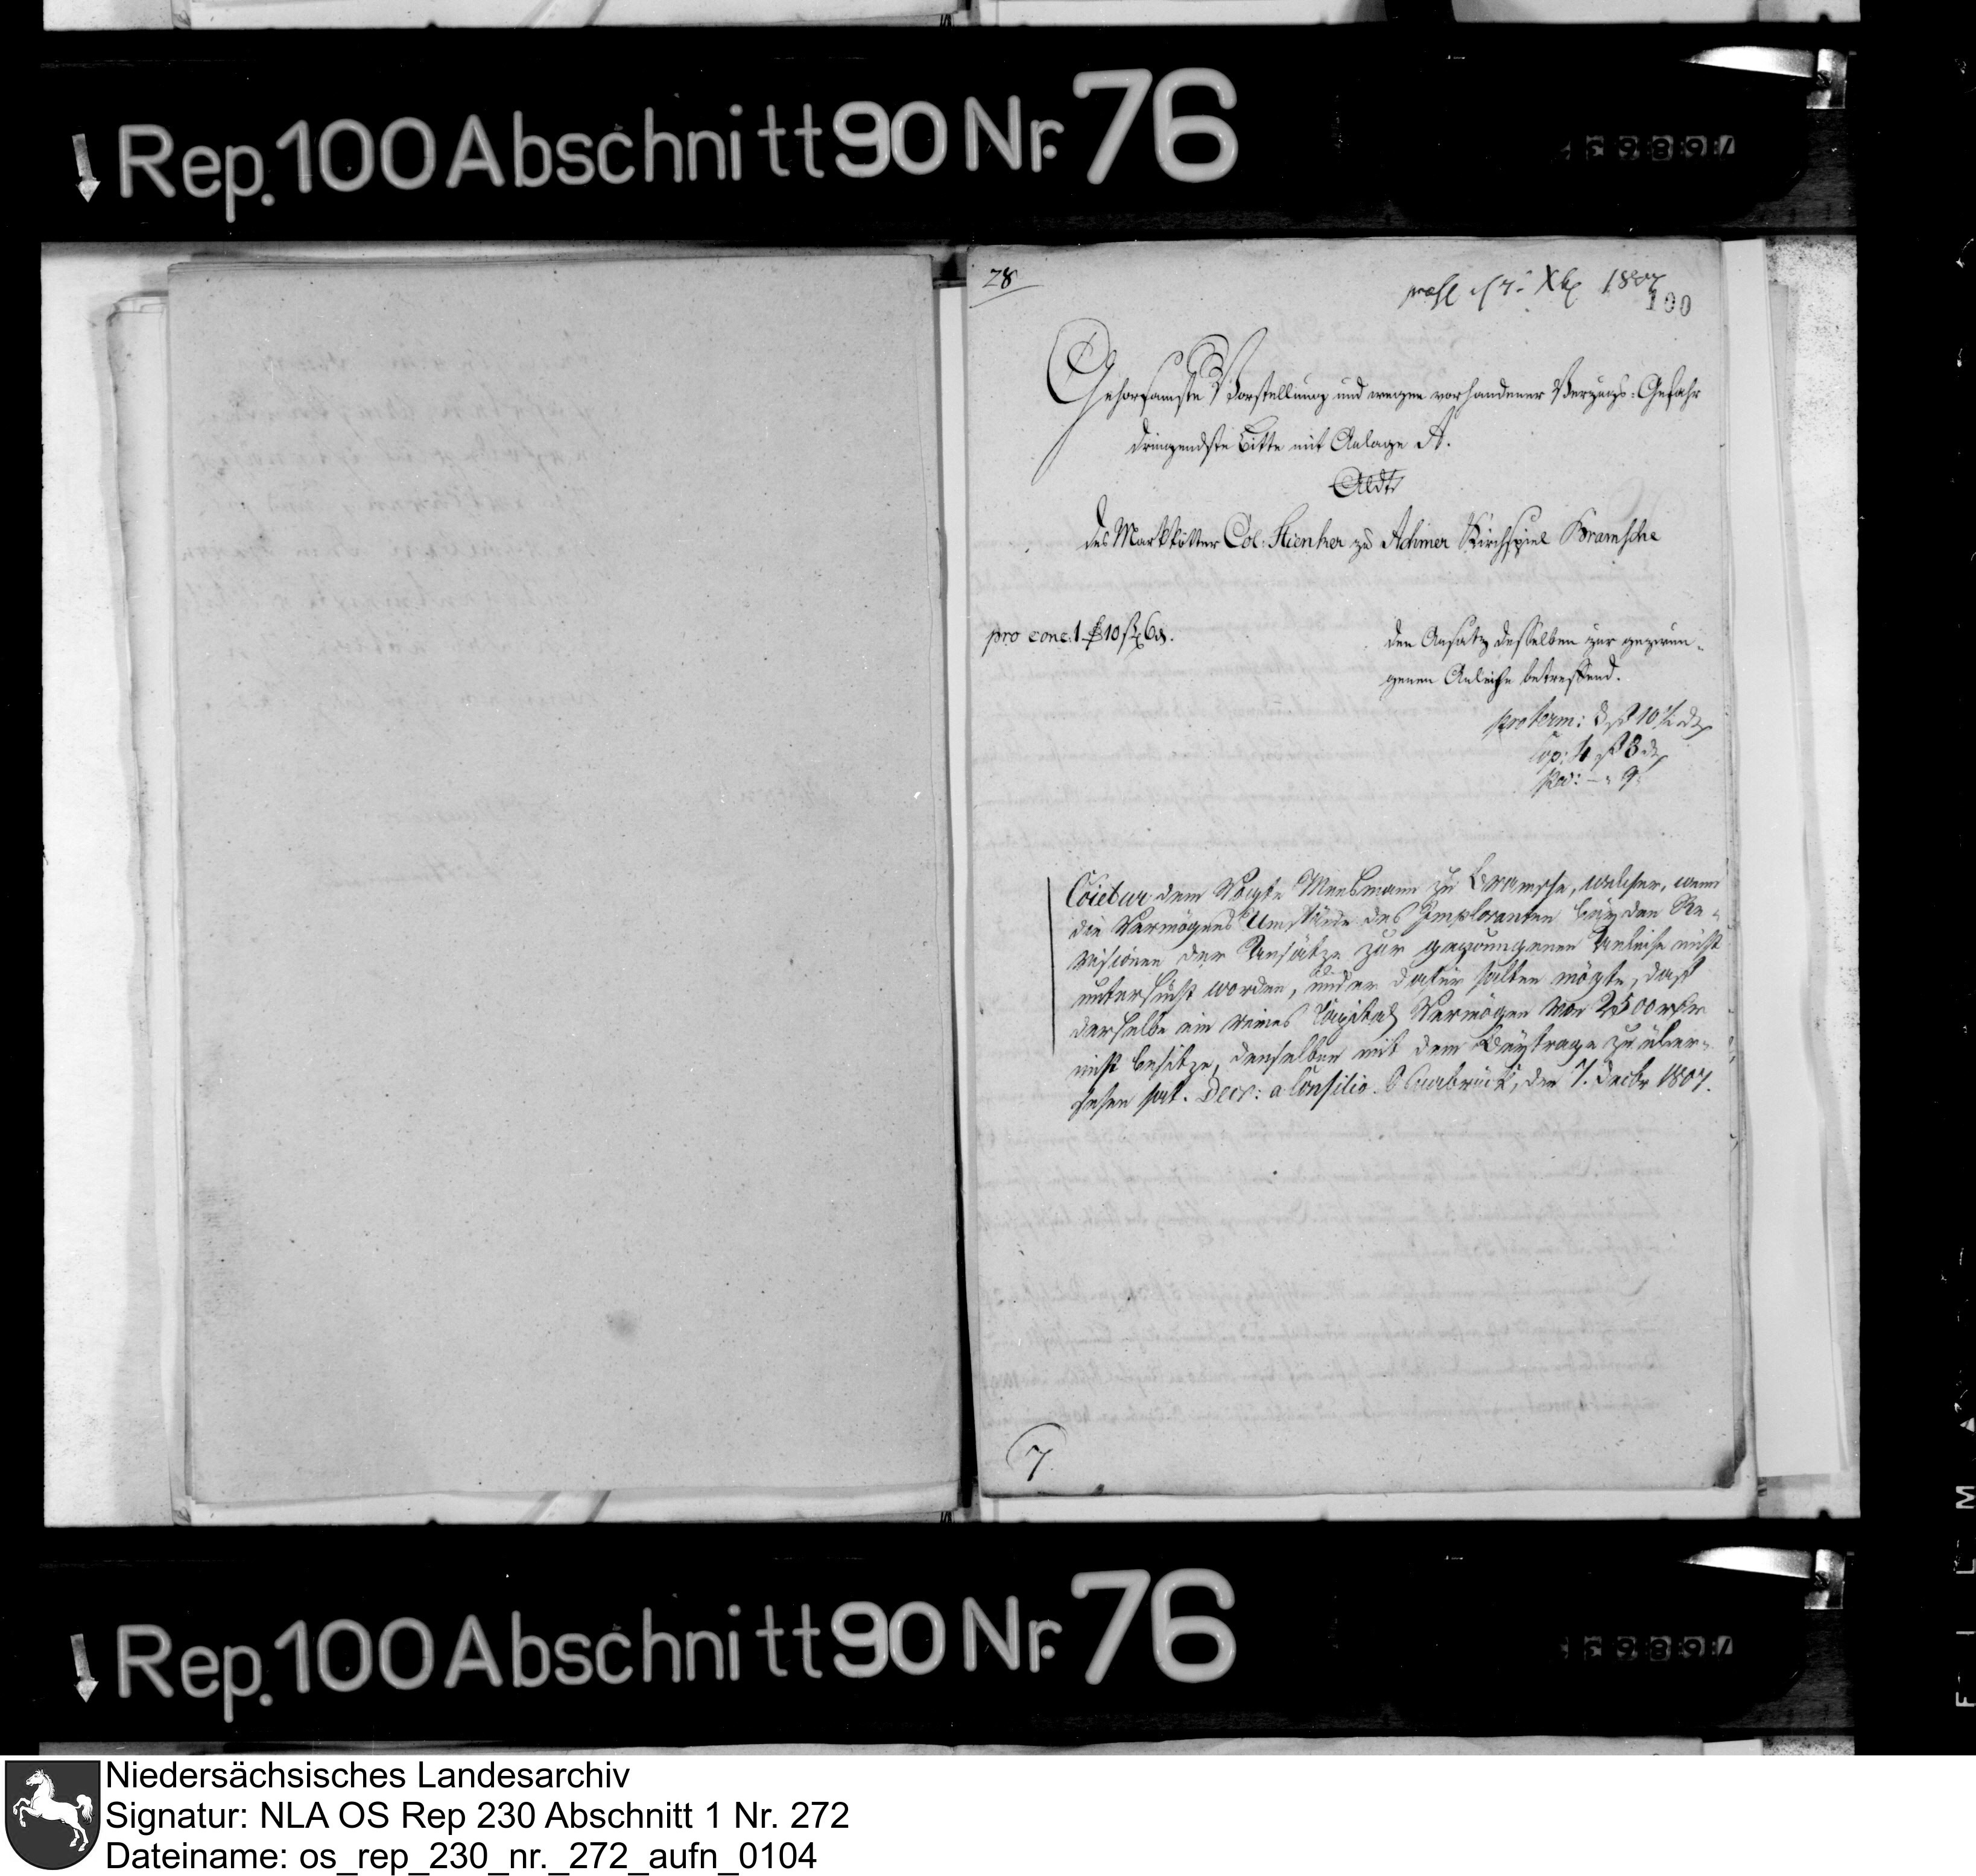 Rep. 100 Abschnitt 90 Nr. 76
28
1807
100
Gehorsamste Vorstellung und wegen vorhandener Verzugs-Gefahr
dringendste Bitte mit Anlage A.
des Markkötter Col: Stienker zu Achmer Kirchspiel Bramsche
pro conc. 1 10 6
den Ansatz desselben zur gezwun-
genen Anleihe betreffend.
pro term:
Cop: 4 3
Coietur dem Vogte Meesmann zu Bramsche, welcher, wenn
die Vermögens Umstände des Imploranten bey den Re-
visionen der Ansätze zur gezwungenen Anleihe nicht
untersucht worden, und er dafür halten mögte, daß
derselbe ein reines Capital Vermögen von 2500 rthr
nicht besitze, denselben mit dem Beytrage zu über-
sehen hat. Decr: a Consilio. Osnabrück, den 7. Decbr 1807.
7
Rep. 100 Abschnitt 90 Nr. 76
Niedersächsisches Landesarchiv
Signatur: NLA OS Rep 230 Abschnitt 1 Nr. 272
Dateiname: os_rep_230_nr._272_aufn_0104